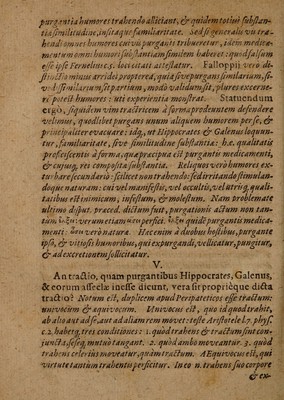 purgantia humores trahendo alliciant, & quidem totius substan-
tiæ similitudine, insitaque familiaritate. Sed si generalis vis tra-
hendi omnes humores cuivis purganti tribueretur, idem medica-
mentum omni humori substantiam similem haberet: quod falsum
esse ipse Fernelius c. 5. loc. citati attestatur. Falloppii verò di-
stinctio minus arridet, propterea, quia sive purgans similarium, si-
ve dissimilarium sit partium, modò validum sit, plures excerne-
re potest humores: uti experientia monstrat. Statuendum
ergò, siquidem vim tractricem à forma prodeuntem defendere
velimus, quodlibet purgans unum aliquem humorem per se, &
principaliter evacuare: idq, ut Hippocrates & Galenus loquun-
tur, familiaritate, sive similitudine substantiæ: h.e. qualitatis
proficiscentis à forma, quæ præcipua est purgantis medicamenti,
& cujusq, rei compositæ substantia. Reliquos verò humores ex-
turbare secundariò: scilicet non trahendo: sed irritando stimulan-
doque naturam: cui vel manifestis, vel occultis, vel utrisq, quali-
tatibus est inimicum, infestum, & molestum. Nam problemate
ultimo disput. præced. dictum fuit, purgationis actum non tan-
tum verum etiam perfici. quidē purgantis medica-
menti: verò natura. Hæc enim à duobus hostibus, purgante
ipso, & vitiosis humoribus, qui expurgandi, vellicatur, pungitur,
& ad excretionem sollicitatur.
V.
An tractio, quam purgantibus Hippocrates, Galenus,
& eorum asseclæ inesse dicunt, vera sit proprièque dicta
tractio? Notum est, duplicem apud Peripateticos esse tractum:
univocum & æquivocum. Univocus est, quo id quod trahit,
ab alio aut ad se, aut ad aliam rem movet: teste Aristotele l. 7. phys.
c. 2. habetq, tres conditiones: 1. quòd trahens & tractum sint con-
juncta, seseq, mutuò tangant. 2. quòd ambo moveantur. 3. quòd
trahens celerius moveatur, quàm tractum. AEquivocus est, qui
virtute tantum trahentis perficitur. In eo n. trahens suo corpore
& ex-